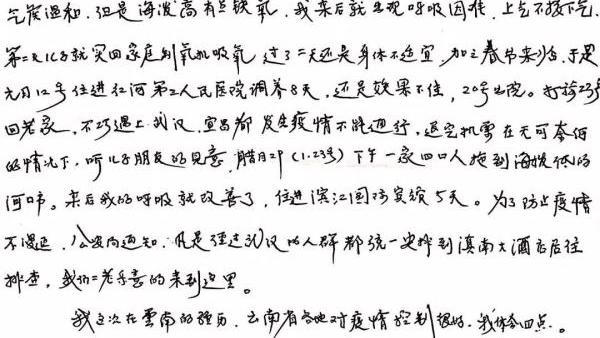 气候温和,但是海波高有点缺氧,我来后就出现呼吸困难,上气不接下气,
第二天儿子就买回家庭制氧机吸氧,过了二天还是身体不适宜,加之春节来临,于是
元月12号住进红河第二人民医院调养8天,还是效果不佳,20号出院。打诊23号
回老家,不巧遇上武汉、宜昌都发生疫情不能通行,退完机票在无可奈何
的情况下,听儿子朋友的见意,腊月29(1.23号)下午一家四口人拖到海拔低的
河口。来后我的呼吸就改善了,住进滨江国际宾馆5天。为了防止疫情
不漫延,公安局通知,凡是经过武汉的人群都统一安排到滇南大酒店居住
排查,我们二老乐喜的来到这里。
我这次在云南的经历,云南省各地对疫情控制很好,我体会四点。